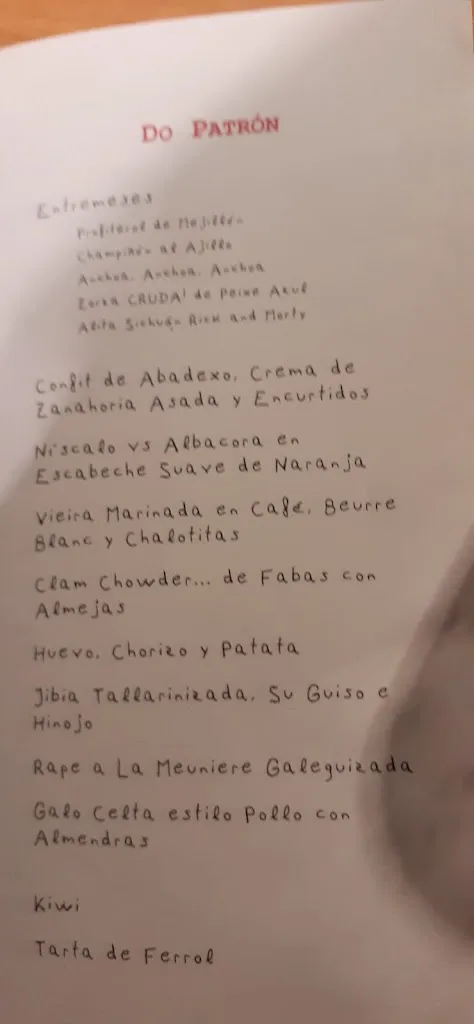 DO PATRÓN
Entremeses
Profiterol de Mejillón
Champiñón al Ajillo
Anchoa, Anchoa, Anchoa
Zorza CRUDA! de Peixe Azul
Alita Sichuan Rick and Morty
Confit de Abadexo, Crema de
Zanahoria Asada y Encurtidos
Níscalo vs Albacora en
Escabeche Suave de Naranja
Vieira Marinada en Café, Beurre
Blanc y Chalotitas
Clam Chowder... de Fabas con
Almejas
Huevo, Chorizo y Patata
Jibia Tallarinizada, Su Guiso e
Hinojo
Rape a La Meuniere Galeguizada
Galo Celta estilo Pollo con
Almendras
Kiwi
Tarta de Ferrol